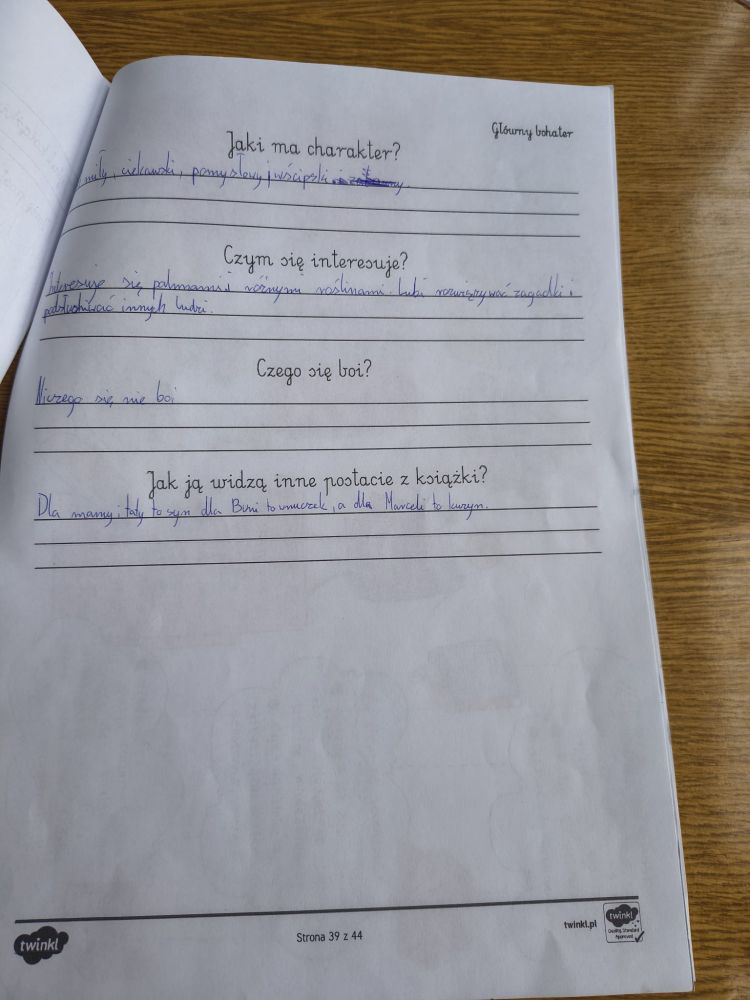 Główny bohater
Jaki ma charakter?
miły, ciekawski, pomysłowy i wścipski
Czym się interesuje?
Interesuje się palmami i różnymi roślinami. Lubi rozwiązywać zagadki i
podsłuchiwać innych ludzi.
Czego się boi?
Niczego się nie boi
Jak ją widzą inne postacie z książki?
Dla mamy i taty to syn dla Buni to wnuczek, a dla Marceli to kuzyn.
twinkl
Strona 39 z 44
twinkl.pl
twinkl
Quality Standard
Approved